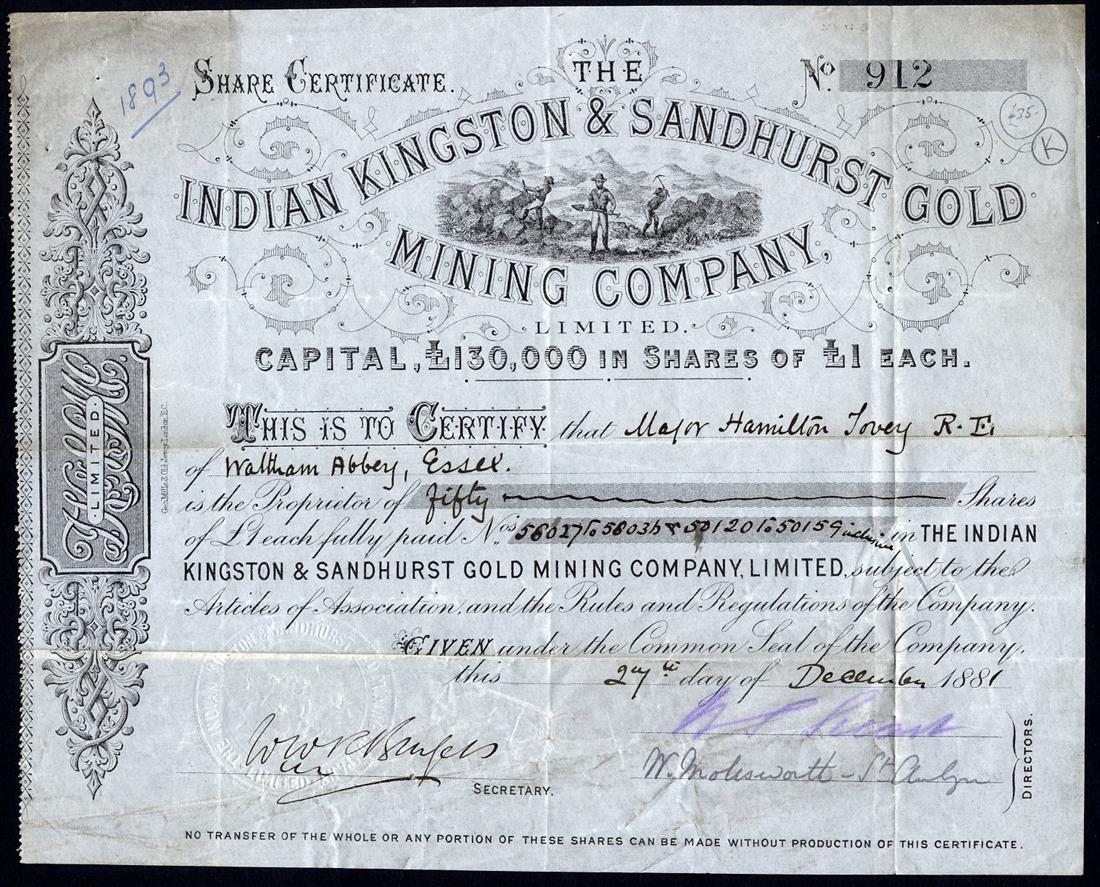 1893
SHARE CERTIFICATE.
No. 912
£75-
K
THE
INDIAN KINGSTON & SANDHURST GOLD
MINING COMPANY,
LIMITED.
CAPITAL, £130,000 IN SHARES OF £1 EACH.
THIS IS TO CERTIFY that Major Hamilton Tovey R.E.
of Waltham Abbey, Essex.
is the Proprietor of fifty Shares
of £1 each fully paid Nos. 56027 to 56036 & 50120 to 50159 inclusive in THE INDIAN
KINGSTON & SANDHURST GOLD MINING COMPANY, LIMITED, subject to the
Articles of Association, and the Rules and Regulations of the Company.
GIVEN under the Common Seal of the Company,
this 27th day of December 1881
W. Molesworth-St Aubyn
SECRETARY.
DIRECTORS.
NO TRANSFER OF THE WHOLE OR ANY PORTION OF THESE SHARES CAN BE MADE WITHOUT PRODUCTION OF THIS CERTIFICATE.
LIMITED